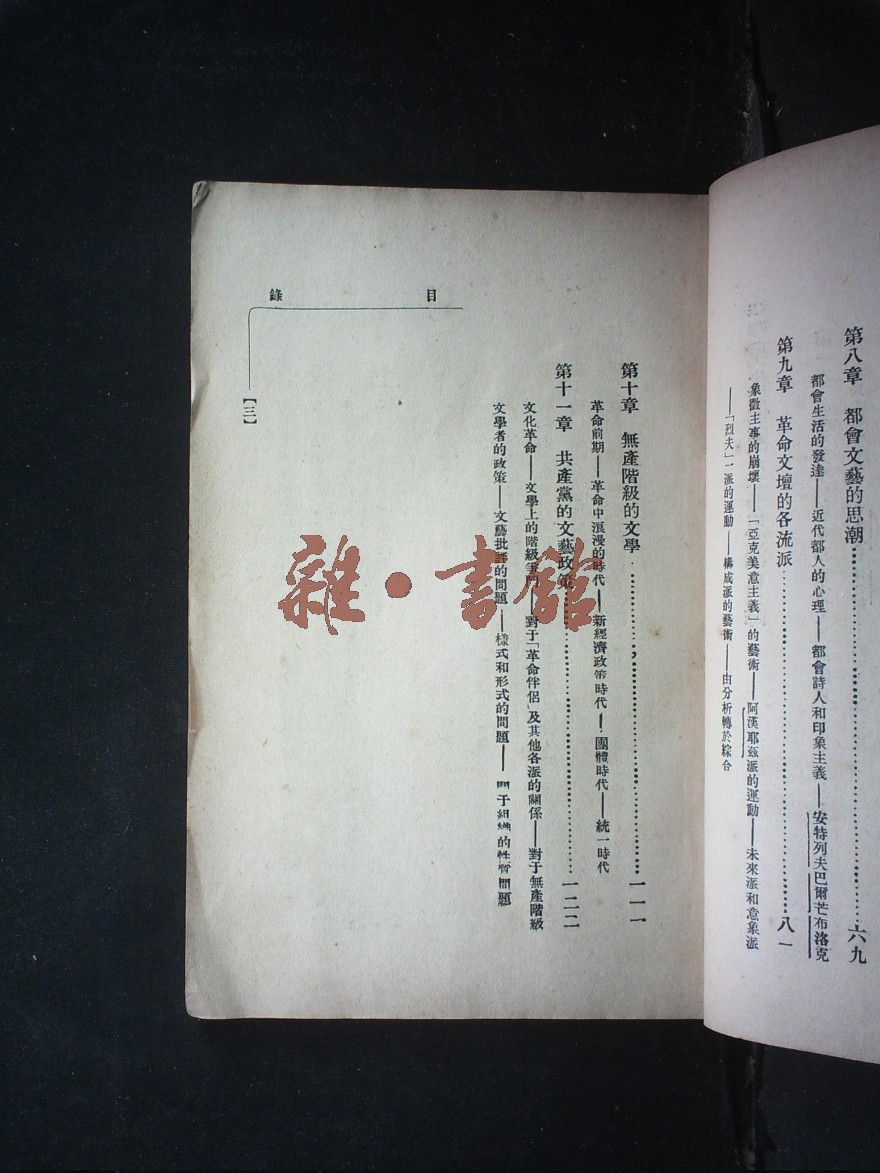 第八章　都會文藝的思潮……六九
都會生活的發達——近代都人的心理——都會詩人和印象主義——安特列夫巴爾芒布洛克
第九章　革命文壇的各流派……八一
象徵主事的崩壞——「亞克美意主義」的藝術——阿漢耶茲派的運動——未來派和意象派
——「烈夫」一派的運動——構成派的藝術——由分析轉於綜合
目錄
第十章　無產階級的文學……一一一
革命前期——革命中浪漫的時代——新經濟政策時代——團體時代——統一時代
第十一章　共產黨的文藝政策……一二二
文化革命——文學上的階級爭鬥——對于「革命伴侶」及其他各派的關係——對于無產階級
文學者的政策——文藝批評的問題——樣式和形式的問題——關于組織的性質問題
【三】
雜·書館